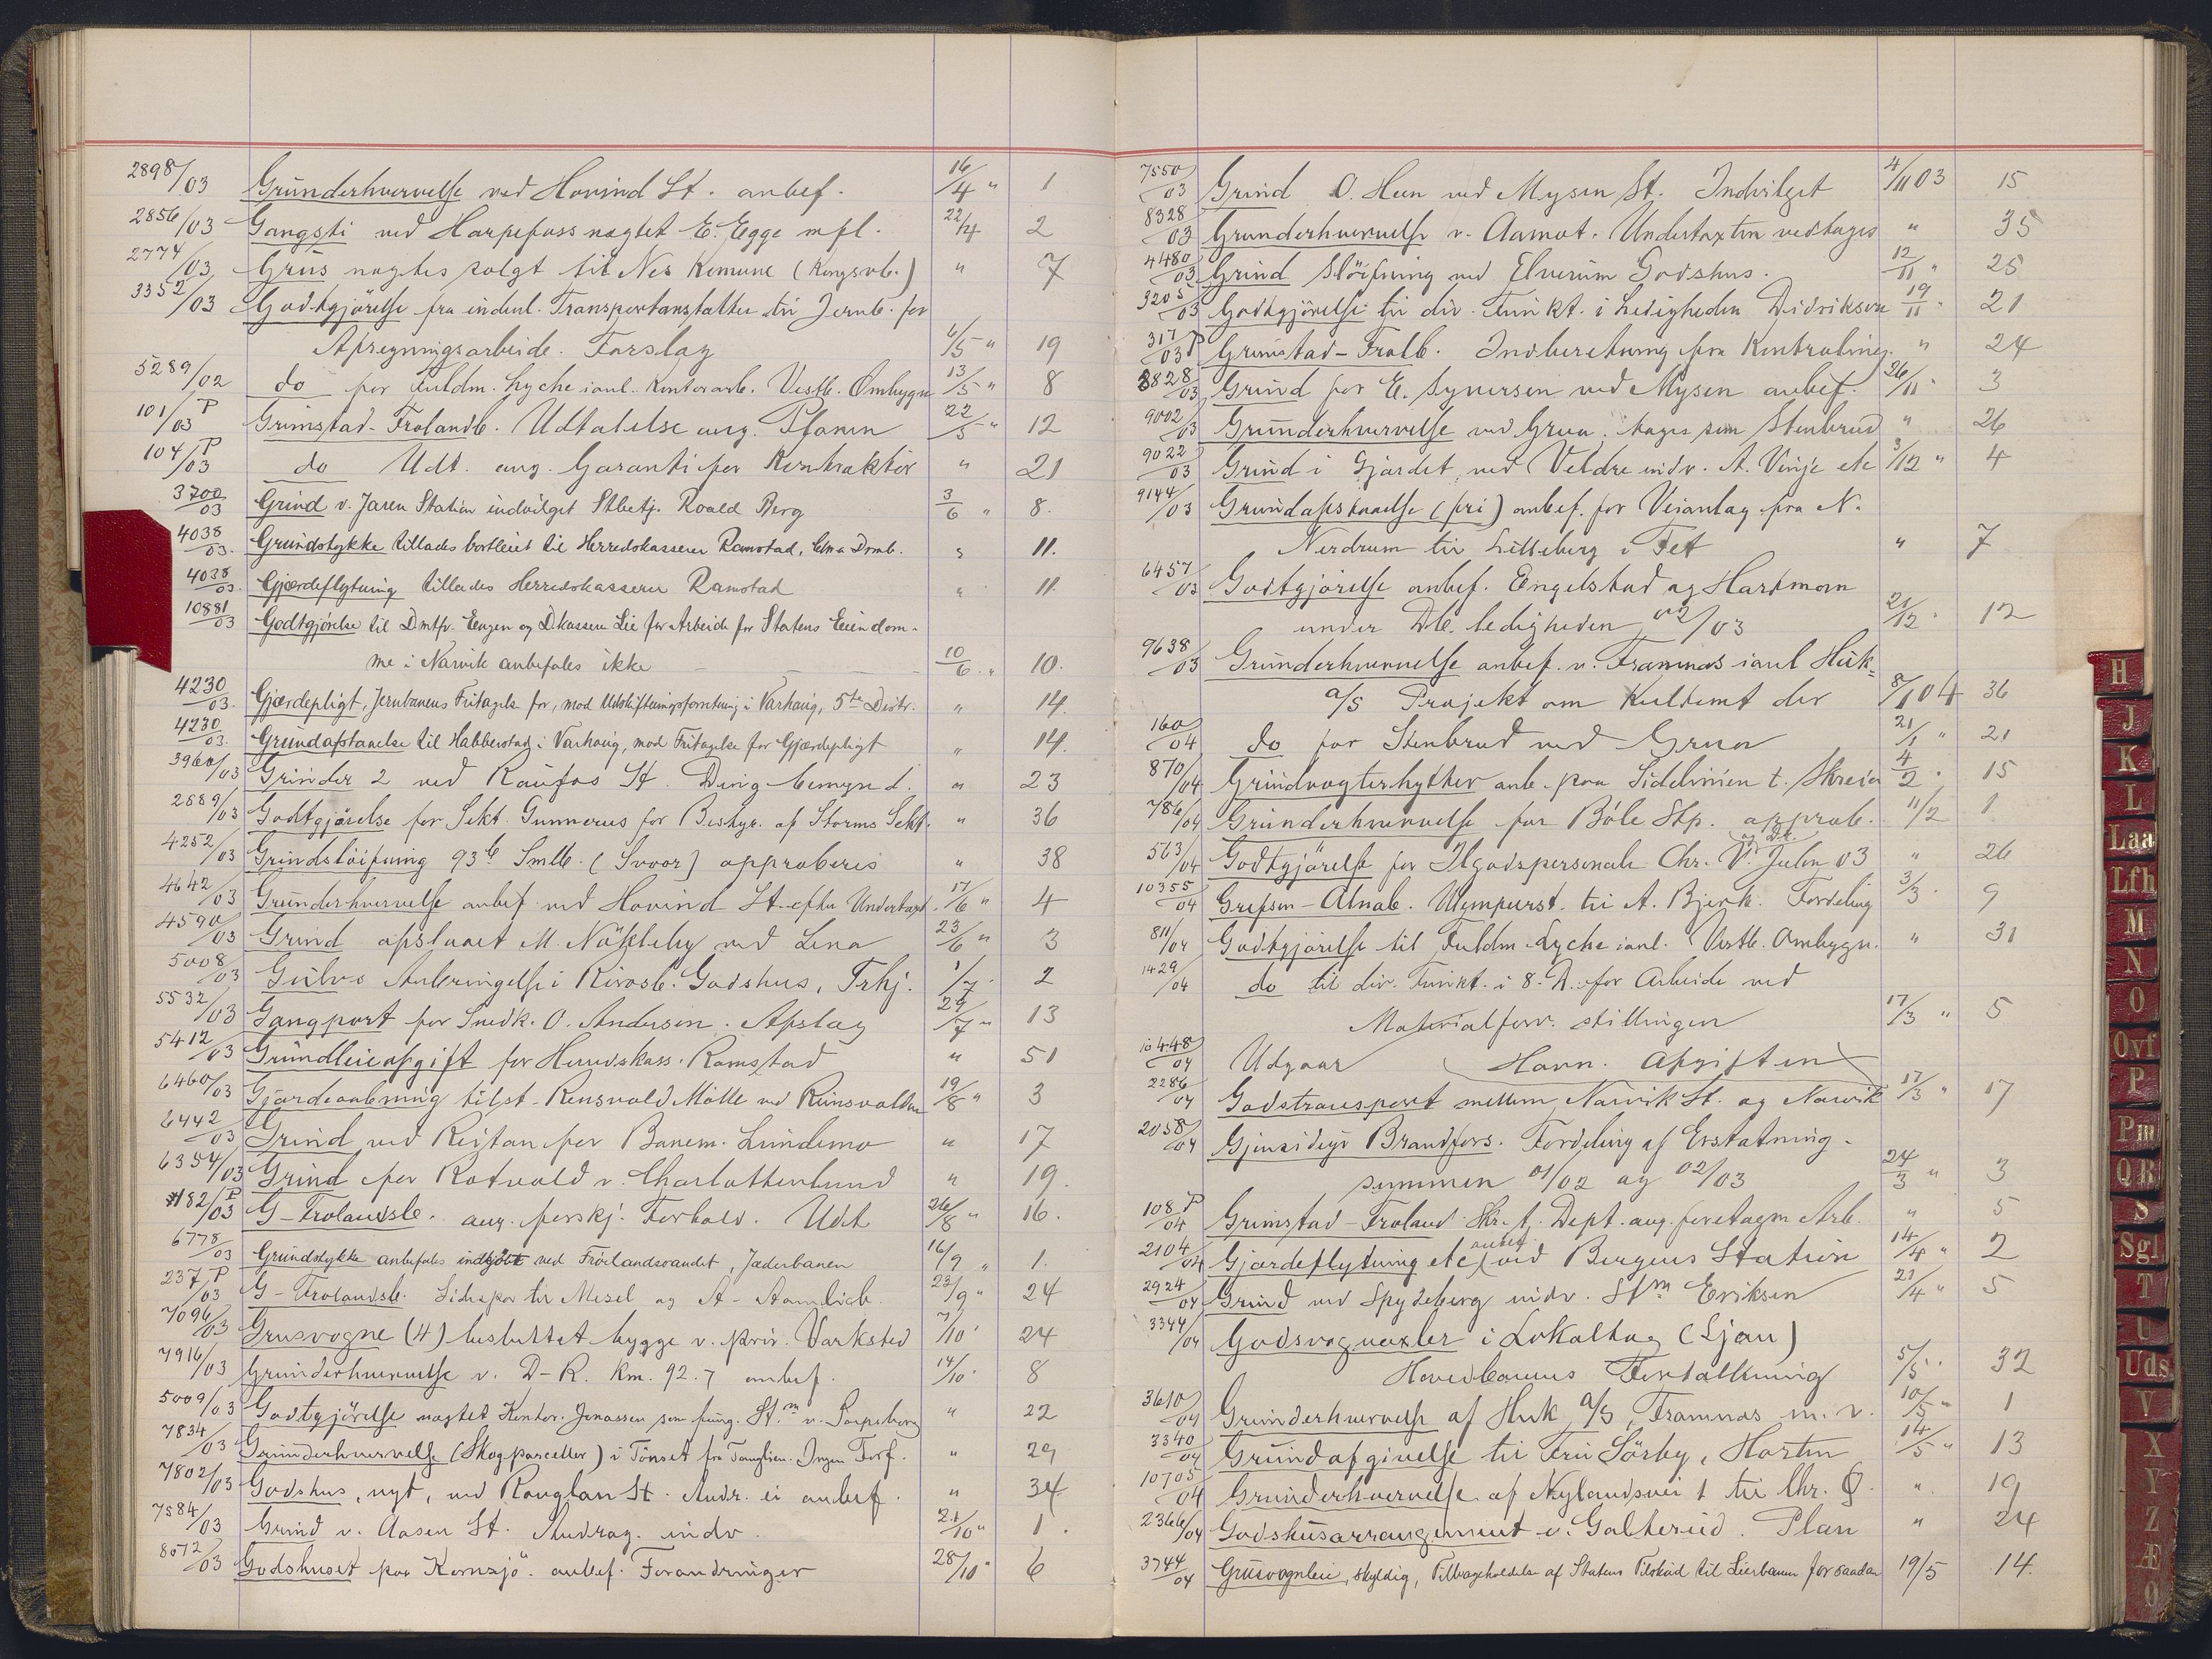 2898/03 Grunderhvervelse ved Hovind St. anbef. 16/4 " 1
2856/03 Gangsti ved Harpefoss nægtet E. Egge mfl. 22/4 2
2774/03 Grus nægtes solgt til Nes Komune (Kongsvb.) " 7
3352/03 Godtgjörelse fra indenl. Transportanstalter til Jernb. for
Afregningsarbeide. Forslag 6/5 " 19
5289/02 do for Fuldm. Lyche ianl. Kontorarb. Vestb. Ombygn 13/5 " 8
101/03 P Grimstad-Frolandb. Udtalelse ang. Planen 22/5 " 12
104/03 P do Udt. ang. Garanti for Kontraktör " 21
3700/03 Grind v. Jaren Station indvilget Stbetj. Roald Berg 3/6 " 8.
4038/03. Grundstykke tillades bortleiet til Herredskasserer Ramstad, " 11.
4038/03. Gjærdeflytning tillades Herredskasserer Ramstad " 11.
10881/03 Godtgjørelse til Dmtfv. Eengen og D.kasserer Lie for Arbeide for Statens Eiendom-
me i Narvik anbefales ikke 10/6 " 10.
4230/03. Gjærdepligt, Jernbanens Fritagelse for, mod Udskiftningsforretning i Varhaug, 5te Distr. " 14.
4230/03. Grundafstaaelse til Habberstad i Varhaug, mod Fritagelse for Gjærdepligt " 14.
3960/03 Grinder 2 ved Raufos St. " 23
2889/03 Godtgjörelse for Sekt. Gunnerus for Bestyr. af Storms Sekt. " 36
4252/03 Grindslöifning 93 6 Smlb. (Svoor) approberes " 38
4642/03 Grunderhvervelse anbef. ved Hovind St. efter Undertaxt. 17/6 " 4
4590/03 Grind afslaaet M. Nökleby ved Lena 23/6 " 3
5008/03 Gulvs Anbringelse i Rörosb. Godshus, Trhj. 1/7 2
5532/03 Gangport for Snedk. O. Andersen. Afslag 29/7 " 13
5412/03 Grundleieafgift for Herredskass. Ramstad " 51
6460/03 Gjærdeaabning tilst. Rensvold Mölle ved 19/8 " 3
6442/03 Grind ved Reitan for Banem. Lundemo " 17
6354/03 Grind for Rotvold v. Charlottenlund " 19.
182/03 P G-Frolandsb. ang. forskj. Forhold. Udt 26/8 " 16.
6778/03 Grundstykke anbefales indkjöbt ved Frøilandsvandet, Jæderbanen 16/9 " 1.
237/03 P G-Frolandsb. Sidespor til Messel og A-Aamlieb. 23/9 " 24
7096/03 Grusvogne (4) besluttet bygge v. priv. Værksted 7/10 " 24
7916/03 Grunderhvervelse v. D-R. Km. 92.7 anbef. 14/10 " 8
5009/03 Godtgjörelse nægtet Kontor. Jonassen som fung. St.m v. Sarpsborg " 22
7834/03 Grunderhvervelse (Skogparceller) i Tönset fra Ingen Forf. " 29
7802/03 Godshus, nyt, ved Rauglan St. Andr. ei anbef. " 34
7584/03 Grind v. Aasen St. Andrag. indv. 21/10 " 1.
8072/03 Godshuset paa Kornsjö. anbef. Forandringer 28/10 " 6
7550/03 Grind O. Heen ved Mysen St. Indvilget 4/11 03 15
8328/03 Grunderhvervelse v. Aamot. Undertaxten vedtages " 35
4480/03 Grind Slöifning ved Elverum Godshus. 12/11 " 25
3205/03 Godtgjörelse til div. Funkt. i Ledigheden Didriksen 19/11 " 21
317/03 P Grimstad-Frolb. Indberetning fra Kontroling. " 24
8828/03 Grind for E. Syversen ved Mysen anbef. 26/11 " 3
9002/03 Grunderhvervelse ved Grua. tages som Stenbrud " 26
9022/03 Grind i Gjærdet ved Veldre indv. A. Vinje etc 3/12 " 4
9144/03 Grundafstaaelse (fri) anbef. for Veianlæg fra N.
Nerdrum til Lilleberg i Fet " 7
6457/03 Godtgjörelse anbef. Engelstad og Hartmann
under Db. ledigheden 02/03 21/12 " 12
9638/03 Grunderhvervelse anbef. v. Framnæs ianl Huk=
a/s Projekt om der 8/1 04 36
160/04 do for Stenbrud ved Grua 21/1 " 21
870/04 Grindvogterhytter anb. paa Sidelinien t. Skreia 4/2 " 15
786/04 Grunderhvervelse for Böle Stp. approb. 11/2 1
563/04 Godtgjörelse for Ilgodspersonale Chr. V. og Dr. Julen 03 " 26
10355/04 Grefsen-Alnab. Ulempeerst. til A. Bjerk. Fordeling 3/3 " 9
811/04 Godtgjörelse til Fuldm. Lyche ianl. Vestb. Ombygn. " 31
1429/04 do til div. Funkt. i 8. D. for Arbeide ved
Materialforv. stillingen 17/3 " 5
10448/04 Udgaar (Havn. Afgiften)
2286/04 Godstransport mellem Narvik St. og Narvik 17/3 " 17
2058/04 Gjensidige Brandfors. Fordeling af Erstatning-
summen 01/02 og 02/03 24/3 " 3
108/04 P Grimstad-Froland Skr. t. Dept. ang. foretagen Arb. " 5
2104/04 Gjærdeflytning etc anbef. ved Bergens Station 14/4 " 2
2924/04 Grind ved Spydeberg indv. St.m Eriksen 21/4 " 5
3344/04 Godsvognaxler i Lokaltog (Ljan)
Hovedbanens Fortolkning 5/5 " 32
3610/04 Grunderhvervelse af Huk a/s, Framnæs m. v. 10/5 " 1
3340/04 Grundafgivelse til Fru Sörby, Horten 14/5 " 13
10705/04 Grunderhvervelse af Nylandsvei 1 til Chr. Ø. " 19
2366/04 Godshusarrangement v. Galterud. Plan " 24
3744/04 Grusvognleie, skyldig, Tilbageholdelse af Statens Tilskud til Lierbanen for saadan 19/5 14.
H
J
K
L
Laa
Lfh
M
N
O
Ovf
P
Pm
QR
S
Sgl
T
U
Uds
V
X
Y
Z
Æ
Ø